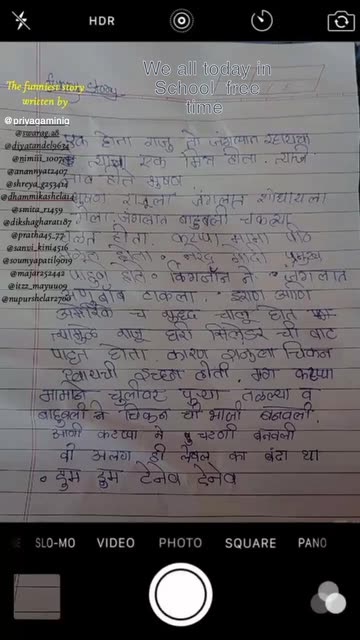 HDR
We all today in
School free
time
Funny Story
The funniest story
written by
@priyagaminig
@swarag.a8
@diyatandel9624
@nimiii_1007
@ananyyat2407
@shreya_g253414
@dhammikashcla14
@smita_r1459
@dikshagharat187
@pratha45.77
@sanvi_kini4516
@soumyapatil9019
@majar252442
@itzz_mayuu09
@nupurshclar2709
एक होता राजू तो जंगलात रहायचा
त्याचा एक मित्र होता. त्याचे
नाव होते भूषण
राजूला जंगलात शोधायला
गेला. जंगलात बाहुबली चकल्या
तळत होता. कटप्पा मामा पीठ
होता. नरेंद्र मोदी
पाहुणे होते. किंगजॉन ने जंगलात
बॉंब टाकला. इराण आणि
अमेरिके च युद्ध चालू होत
त्यामुळे राजू घरी सिलेंडर ची वाट
पाहत होता. कारण राजूला चिकन
खायची इच्छा होती. मग कटप्पा
मामाने चूलीवर पुऱ्या तळल्या व
बाहुबली ने चिकन ची भाजी बनवली.
आणी कटप्पा ने चटणी बनवली
वो अलग ही लेवल का बंदा था
• ढुम ढुम टेनेव टेनेव
SLO-MO VIDEO PHOTO SQUARE PANO